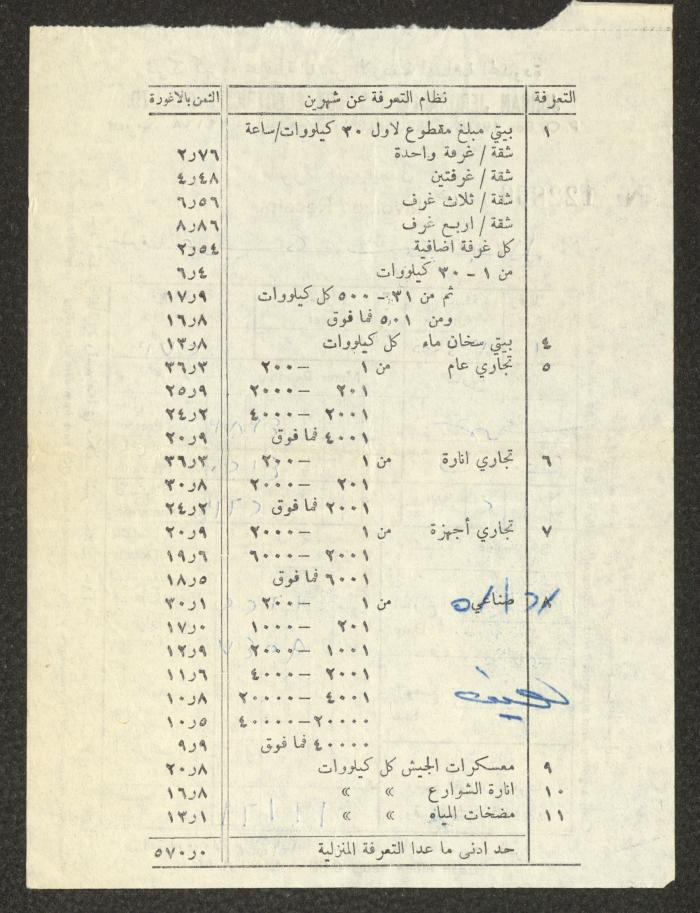 التعرفة نظام التعرفة عن شهرين الثمن بالاغورة
١ بيتي مبلغ مقطوع لاول ٣٠ كيلووات/ساعة
شقة / غرفة واحدة ٢٫٧٦
شقة / غرفتين ٤٫٤٨
شقة / ثلاث غرف ٦٫٥٦
شقة / اربع غرف ٨٫٨٦
كل غرفة اضافية ٢٫٥٤
من ١ - ٣٠ كيلووات ٦٫٤
ثم من ٣١ - ٥٠٠ كل كيلووات ١٧٫٩
ومن ٥٠١ فما فوق ١٦٫٨
٤ بيتي سخان ماء كل كيلووات ١٣٫٨
٥ تجاري عام من ١ - ٢٠٠ ٣٦٫٣
٢٠١ - ٢٠٠٠ ٢٥٫٩
٢٠٠١ - ٤٠٠٠ ٢٤٫٢
٤٠٠١ فما فوق ٢٠٫٩
٦ تجاري انارة من ١ - ٢٠٠ ٣٦٫٣
٢٠١ - ٢٠٠٠ ٣٠٫٨
٢٠٠١ فما فوق ٢٤٫٢
٧ تجاري أجهزة من ١ - ٢٠٠٠ ٢٠٫٩
٢٠٠١ - ٦٠٠٠ ١٩٫٦
٦٠٠١ فما فوق ١٨٫٥
٨ صناعي من ١ - ٢٠٠ ٣٠٫١
٢٠١ - ١٠٠٠ ١٧٫٠
١٠٠١ - ٢٠٠٠ ١٢٫٩
٢٠٠١ - ٤٠٠٠ ١١٫٦
٤٠٠١ - ٢٠٠٠٠ ١٠٫٨
٢٠٠٠٠ - ٤٠٠٠٠ ١٠٫٥
٤٠٠٠٠ فما فوق ٩٫٩
٩ معسكرات الجيش كل كيلووات ٢٠٫٨
١٠ انارة الشوارع » » ١٦٫٨
١١ مضخات المياه » » ١٣٫١
حد ادنى ما عدا التعرفة المنزلية ٥٧٠٫٠